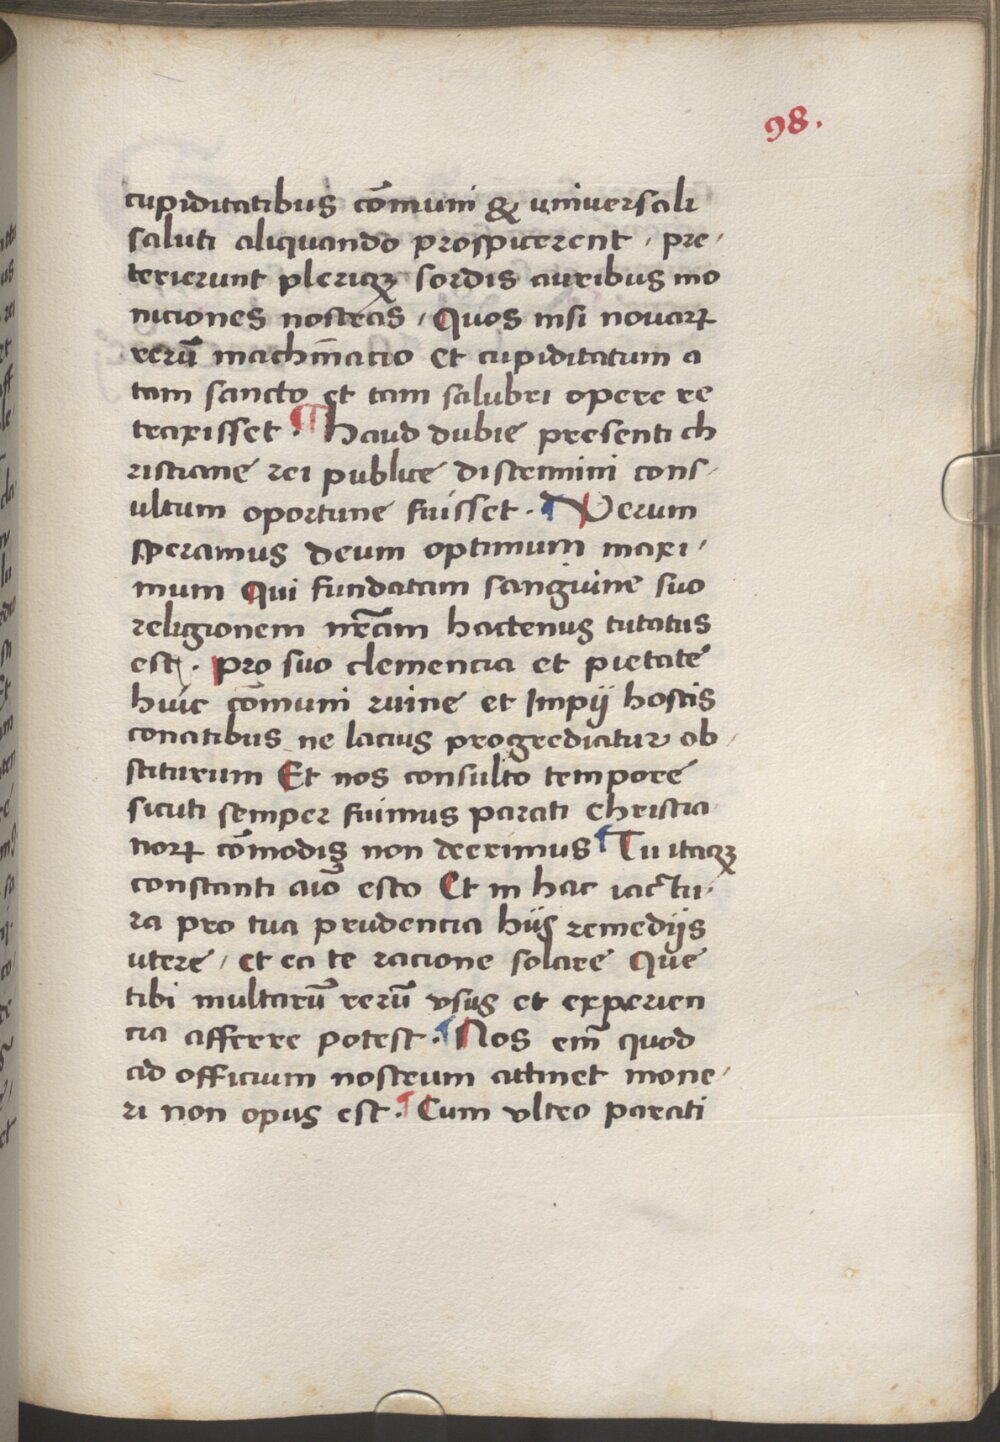 98.
cupiditatibus cōmuni & universali
saluti aliquando prospicerent, pre,
terierunt pleriqꝫ sordis auribus mo
niciones nostras, Quos nisi novarꝝ
rerū machīnatio et cupiditatum a
tam sancto et tam salubri opere re
traxisset. ¶ haud dubie presenti ch
ristiane rei publice discrimini cons,
ultum oportune fuisset. ¶ Verum
speramus deum optimum maxi,
mum Qui fundatam sanguine suo
religionem nr̄am hactenus tutatus
est. pro suo clemencia et pietate
huic cōmuni ruine et Impij hostis
conatibus ne lacius progrediatur ob,
stiturum Et nos consulto tempore
sicuti semper fuimus parati christia
norꝝ cōmodis non deerimus ¶ Tu itaqꝫ
constanti aīo esto Et in hac iactu,
ra pro tua prudencia hijs remedijs
utere, et ea te racione solare Que
tibi multarū rerū vsus et experien
cia afferre potest. ¶ Nos em̄ quod
ad officium nostrum attinet mone,
ri non opus est. ¶ Cum vltro parati